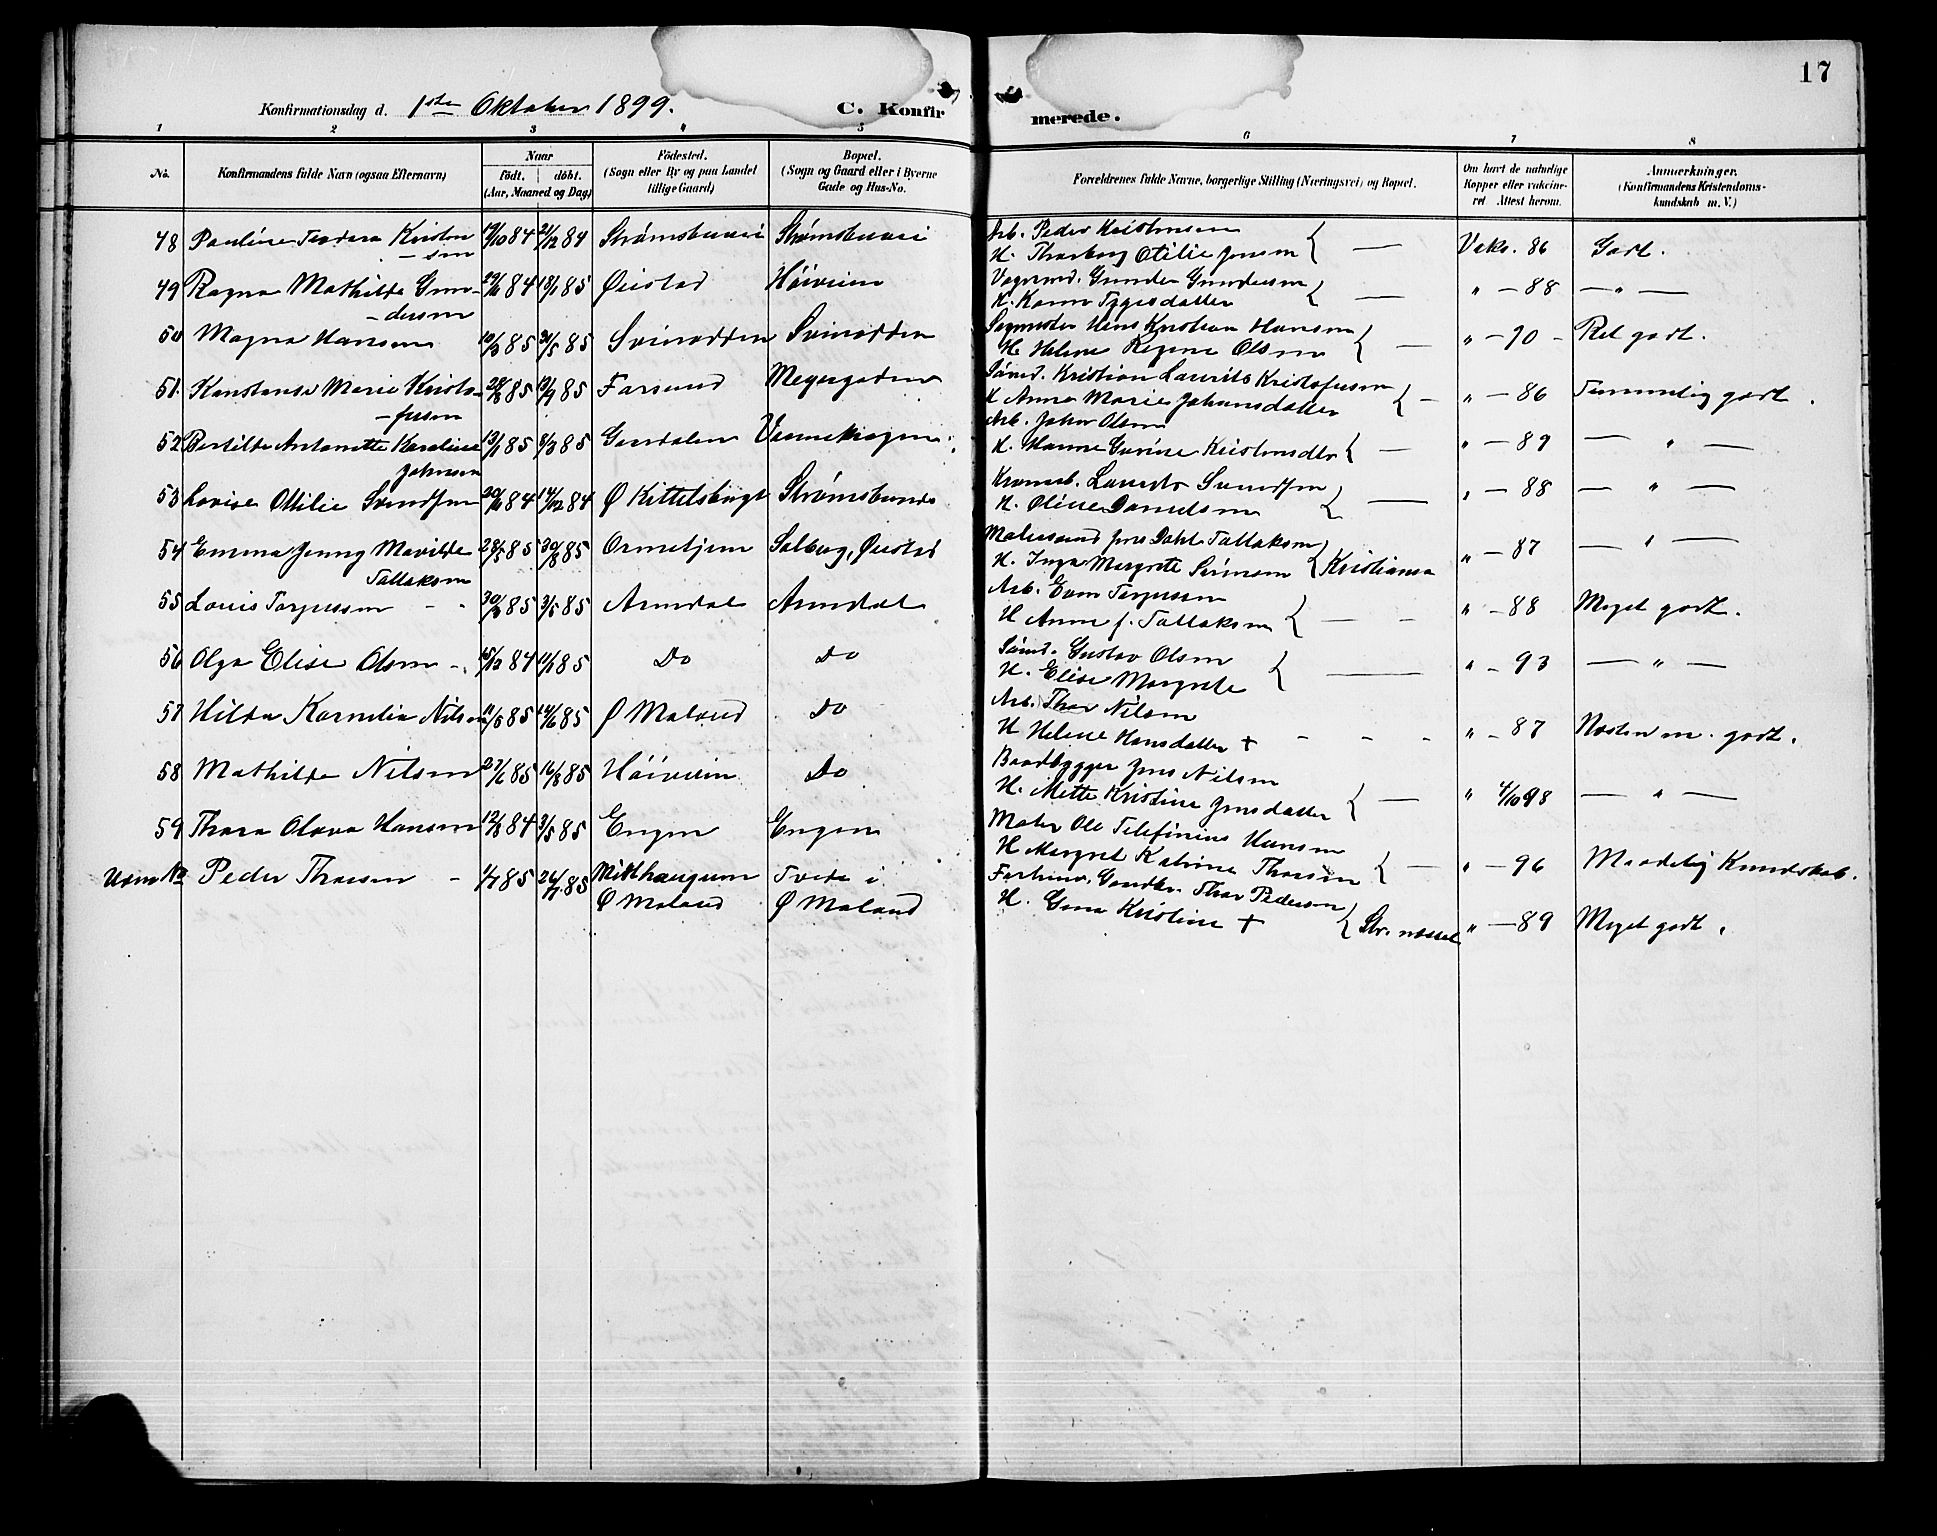 17
Konfirmationsdag d. 1ste Oktober 1899. C. Konfirmerede.
1 2 3 4 5 6 7 8
No. Konfirmandens fulde Navn (ogsaa Efternavn) Naar födt. döbt. (Aar, Maaned og Dag) Födested. (Sogn eller By og paa Landet tillige Gaard) Bopæl. (Sogn og Gaard eller i Byerne Gade og Hus-No. Forældrenes fulde Navne, borgerlige Stilling (Næringsvei) og Bopæl. Om havt de naturlige Kopper eller vakcineret Attest herom. Anmærkninger. (Konfirmandens Kristendomskundskab m. V.)
48 Pauline Teodora Kristensen 84 21/12 84 Strømsbuvei Strømsbuvei Arb. Peder Kristensen
H. Thorborg Otilie Jensen Vaks. 86 Godt.
49 Ragna Mathilde Gundersen 84 18/1 85 Øiestad Höiveien Gunder Gundersen
H. Karen Tygesdatter " - 88 — " —
50 Magna Hansen 10/3 85 31/5 85 Svinodden Svinodden Hans Kristian Hansen
H. Helene Regine Olsen " - 90 - Ret godt.
51. Konstanse Marie Kristofersen 85 85 Farsund Meyergaden Sömd. Kristian Laurits Kristofersen
H Anne Marie Johansdatter " - 86 Temmelig godt.
52 Bertilde Antonette Karoline Johnsen 13/1 85 8/3 85 Arb. John Olsen
H. Hanne Gurine Kristensdtr " - 89 — " —
53 Lovise Ottilie Svendsen 84 14/12 84 Ø Kittelsbugt Strømsbunes Laurits Svendsen
H. Oline Danielsen " - 88 — " —
54 Emma Jenny Mavilde Tallaksen 85 30/8 85 Ormetjern Solberg, Øiestad Malersvend Jens Dahl Tallaksen
H. Inga Margrete Sörensen Kristiania " - 87 — " —
55 Louis Terjesen - - 30/3 85 3/5 85 Arendal Arendal Arb. Even Terjesen
H Anne f. Tallaksen " - 88 Meget godt.
56 Olga Elise Olsen 15/12 84 11/1 85 Do Do Sömd. Gustav Olsen
H. Elise Margrete " - 93 — " —
57 Hilda Kornelia Nilsen 11/5 85 14/6 85 Ø Moland Do Arb. Thor Nilsen
H Helene Hansdatter + " - 87 Næsten m. godt.
58 Mathilde Nilsen 27/6 85 16/8 85 Höiveien Do Baadbygger Jens Nilsen
H. Mette Kristine Jensdatter " 4/10 98 — " —
59 Thora Olava Hansen 12/8 84 3/5 85 Engen Engene Maler Ole Telefinius Hansen
H Margret Katrine Thorsen " - 96 Maadelig Kundskab.
Uden No Peder Thorsen - 4/7 85 26/7 85 Midthaugum Ø Moland Tvede i Ø Moland Thor Pedersen
H. Gina Kristine + " - 89 Meget godt.